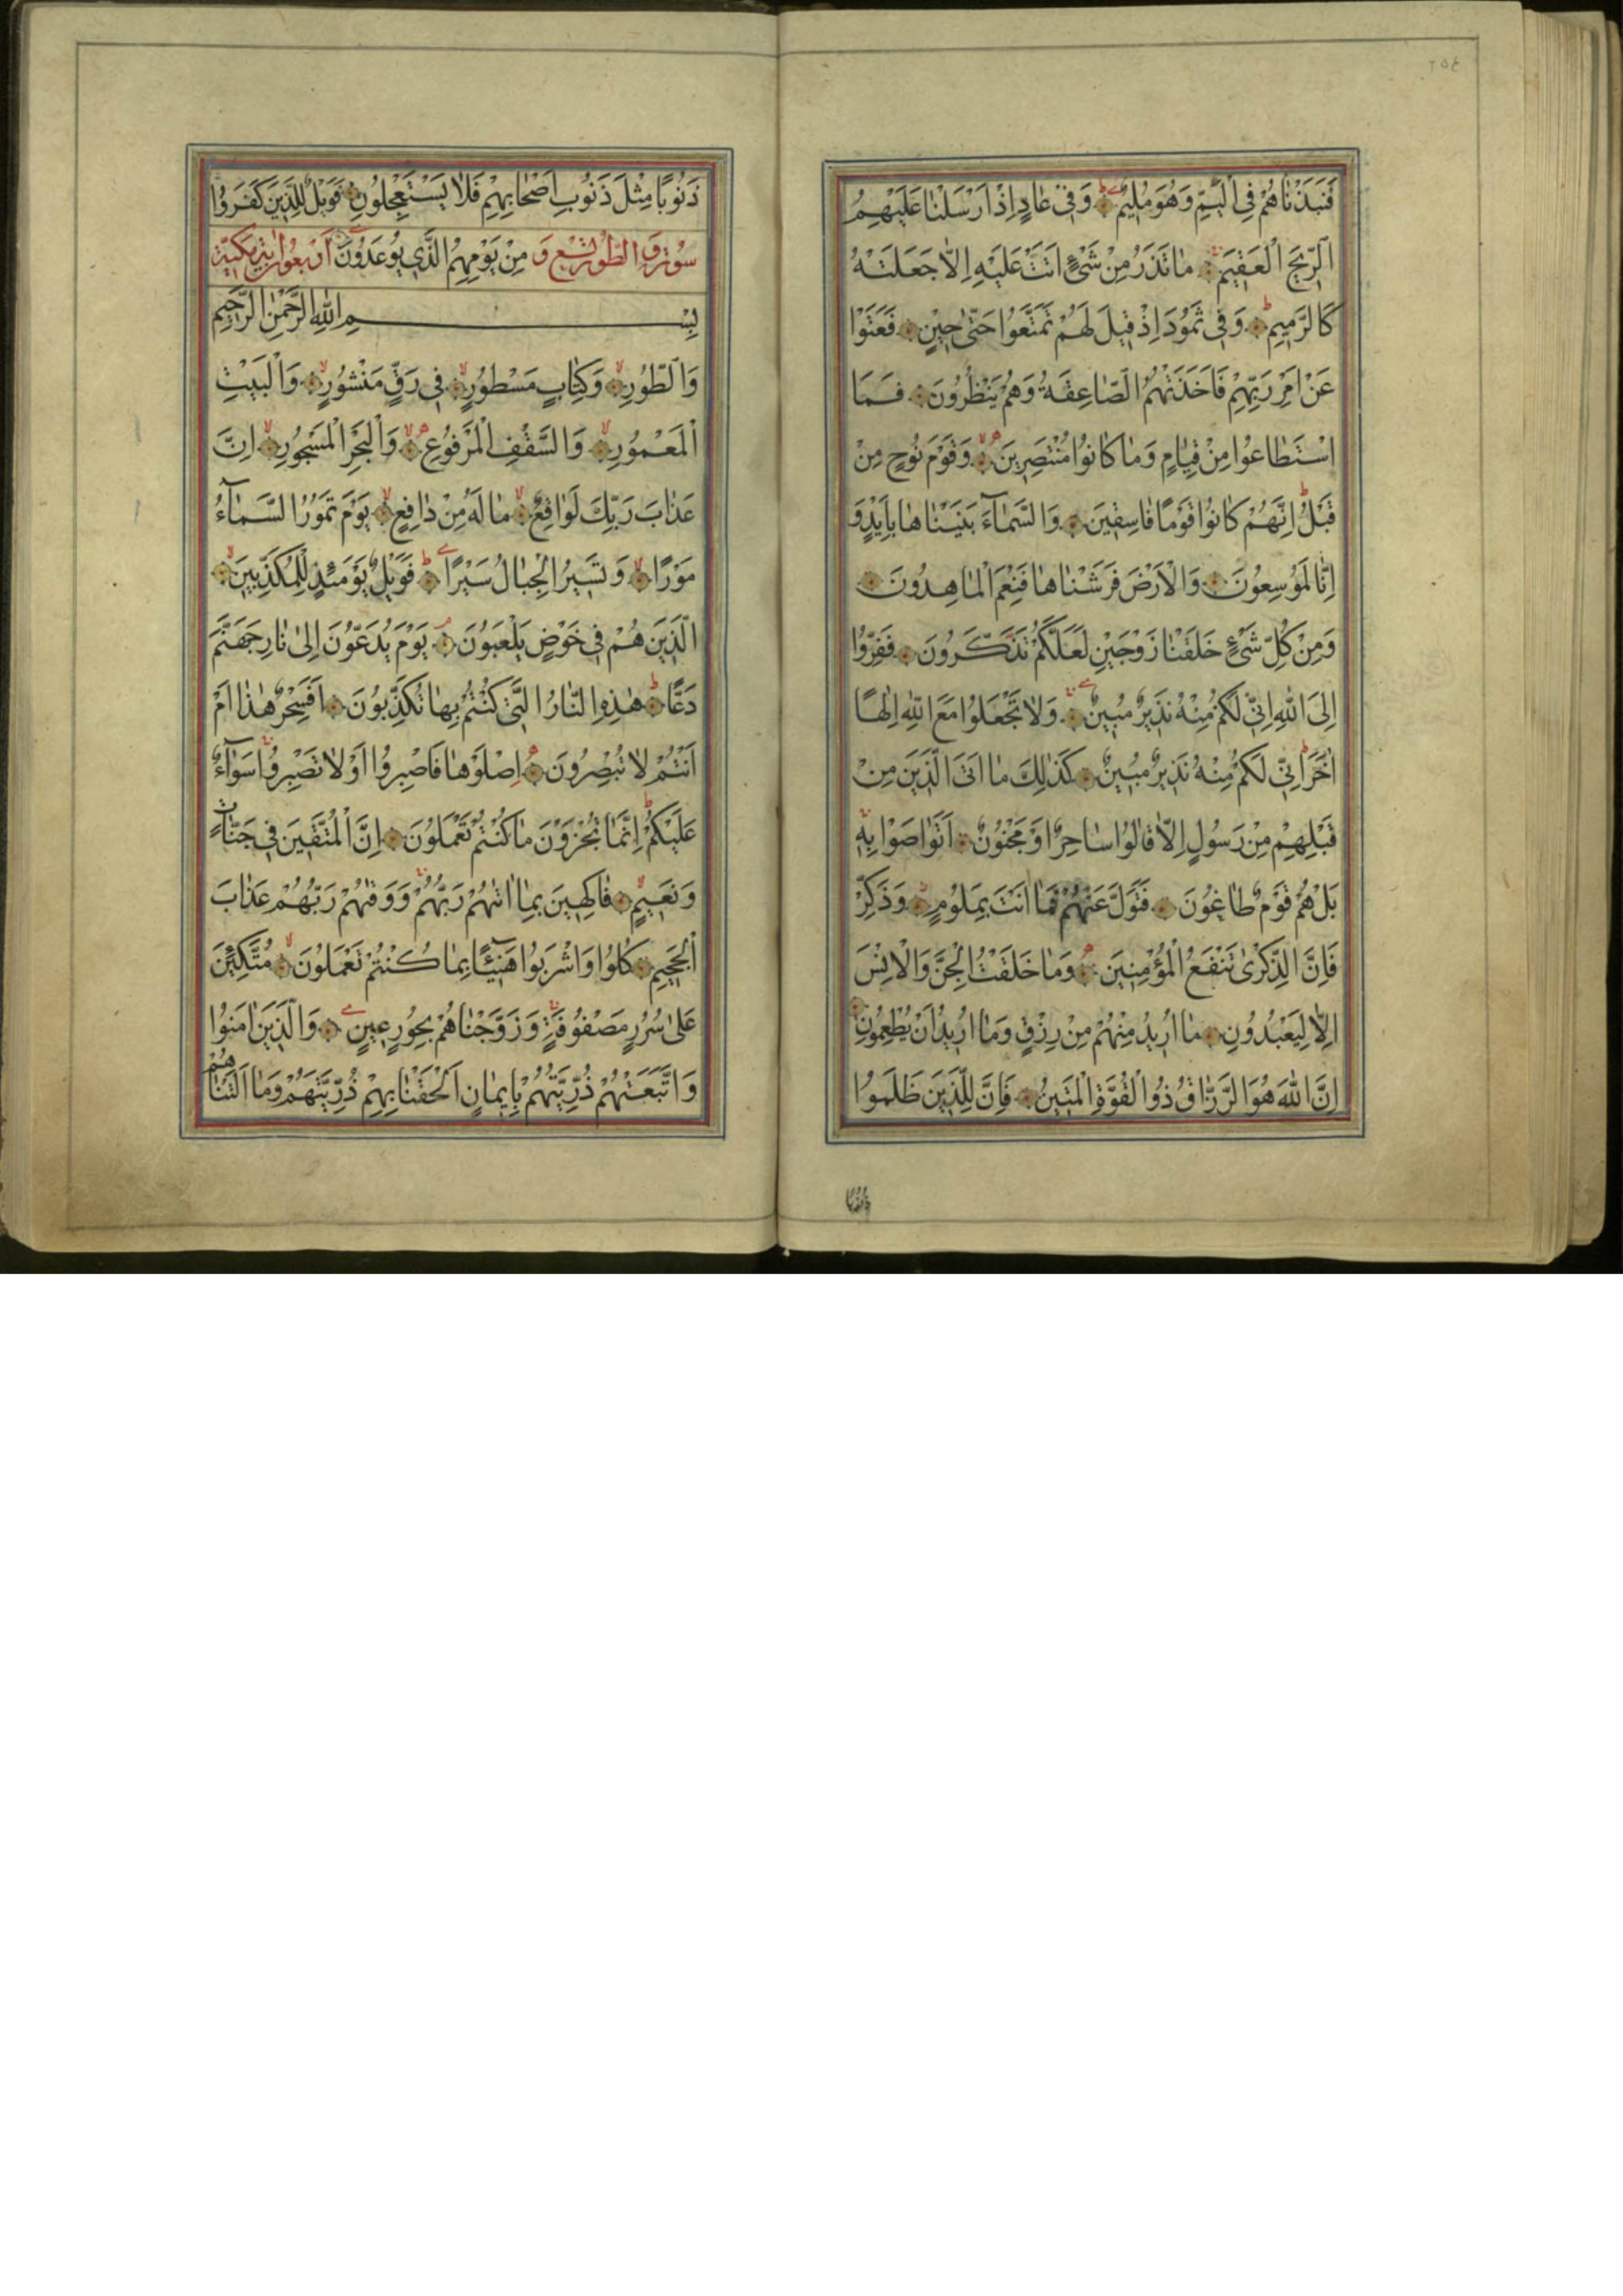 ٢٥٤
فَنَبَذْنَاهُمْ فِي الْيَمِّ وَهُوَ مُلِيمٌ وَفِي عَادٍ اِذْ اَرْسَلْنَا عَلَيْهِمُ
الرِّيحَ الْعَقِيمَ مَا تَذَرُ مِنْ شَيْءٍ اَتَتْ عَلَيْهِ اِلَّا جَعَلَتْهُ
كَالرَّمِيمِ وَفِي ثَمُودَ اِذْ قِيلَ لَهُمْ تَمَتَّعُوا حَتّٰى حِينٍ فَعَتَوْا
عَنْ اَمْرِ رَبِّهِمْ فَاَخَذَتْهُمُ الصَّاعِقَةُ وَهُمْ يَنْظُرُونَ فَمَا
اسْتَطَاعُوا مِنْ قِيَامٍ وَمَا كَانُوا مُنْتَصِرِينَ وَقَوْمَ نُوحٍ مِنْ
قَبْلُ اِنَّهُمْ كَانُوا قَوْمًا فَاسِقِينَ وَالسَّمَاءَ بَنَيْنَاهَا بِاَيْدٍ وَ
اِنَّا لَمُوسِعُونَ وَالْاَرْضَ فَرَشْنَاهَا فَنِعْمَ الْمَاهِدُونَ
وَمِنْ كُلِّ شَيْءٍ خَلَقْنَا زَوْجَيْنِ لَعَلَّكُمْ تَذَكَّرُونَ فَفِرُّوا
اِلَى اللّٰهِ اِنِّي لَكُمْ مِنْهُ نَذِيرٌ مُبِينٌ وَلَا تَجْعَلُوا مَعَ اللّٰهِ اِلٰهًا
اٰخَرَ اِنِّي لَكُمْ مِنْهُ نَذِيرٌ مُبِينٌ كَذٰلِكَ مَا اَتَى الَّذِينَ مِنْ
قَبْلِهِمْ مِنْ رَسُولٍ اِلَّا قَالُوا سَاحِرٌ اَوْ مَجْنُونٌ اَتَوَاصَوْا بِهِ
بَلْ هُمْ قَوْمٌ طَاغُونَ فَتَوَلَّ عَنْهُمْ فَمَا اَنْتَ بِمَلُومٍ وَذَكِّرْ
فَاِنَّ الذِّكْرٰى تَنْفَعُ الْمُؤْمِنِينَ وَمَا خَلَقْتُ الْجِنَّ وَالْاِنْسَ
اِلَّا لِيَعْبُدُونِ مَا اُرِيدُ مِنْهُمْ مِنْ رِزْقٍ وَمَا اُرِيدُ اَنْ يُطْعِمُونِ
اِنَّ اللّٰهَ هُوَ الرَّزَّاقُ ذُو الْقُوَّةِ الْمَتِينُ فَاِنَّ لِلَّذِينَ ظَلَمُوا
ذَنُوبًا
ذَنُوبًا مِثْلَ ذَنُوبِ اَصْحَابِهِمْ فَلَا يَسْتَعْجِلُونِ فَوَيْلٌ لِلَّذِينَ كَفَرُوا
سُورَةُ الطُّورِ تِسْعٌ وَ مِنْ يَوْمِهِمُ الَّذِي يُوعَدُونَ اَرْبَعُونَ اٰيَةً مَكِّيَّةٌ
بِسْمِ اللّٰهِ الرَّحْمٰنِ الرَّحِيمِ
وَالطُّورِ وَكِتَابٍ مَسْطُورٍ فِي رَقٍّ مَنْشُورٍ وَالْبَيْتِ
الْمَعْمُورِ وَالسَّقْفِ الْمَرْفُوعِ وَالْبَحْرِ الْمَسْجُورِ اِنَّ
عَذَابَ رَبِّكَ لَوَاقِعٌ مَا لَهُ مِنْ دَافِعٍ يَوْمَ تَمُورُ السَّمَاءُ
مَوْرًا وَتَسِيرُ الْجِبَالُ سَيْرًا فَوَيْلٌ يَوْمَئِذٍ لِلْمُكَذِّبِينَ
الَّذِينَ هُمْ فِي خَوْضٍ يَلْعَبُونَ يَوْمَ يُدَعُّونَ اِلٰى نَارِ جَهَنَّمَ
دَعًّا هٰذِهِ النَّارُ الَّتِي كُنْتُمْ بِهَا تُكَذِّبُونَ اَفَسِحْرٌ هٰذَا اَمْ
اَنْتُمْ لَا تُبْصِرُونَ اِصْلَوْهَا فَاصْبِرُوا اَوْ لَا تَصْبِرُوا سَوَاءٌ
عَلَيْكُمْ اِنَّمَا تُجْزَوْنَ مَا كُنْتُمْ تَعْمَلُونَ اِنَّ الْمُتَّقِينَ فِي جَنَّاتٍ
وَنَعِيمٍ فَاكِهِينَ بِمَا اٰتٰهُمْ رَبُّهُمْ وَوَقٰهُمْ رَبُّهُمْ عَذَابَ
الْجَحِيمِ كُلُوا وَاشْرَبُوا هَنِيئًا بِمَا كُنْتُمْ تَعْمَلُونَ مُتَّكِئِينَ
عَلٰى سُرُرٍ مَصْفُوفَةٍ وَزَوَّجْنَاهُمْ بِحُورٍ عِينٍ وَالَّذِينَ اٰمَنُوا
وَاتَّبَعَتْهُمْ ذُرِّيَّتُهُمْ بِاِيمَانٍ اَلْحَقْنَا بِهِمْ ذُرِّيَّتَهُمْ وَمَا اَلَتْنَاهُمْ